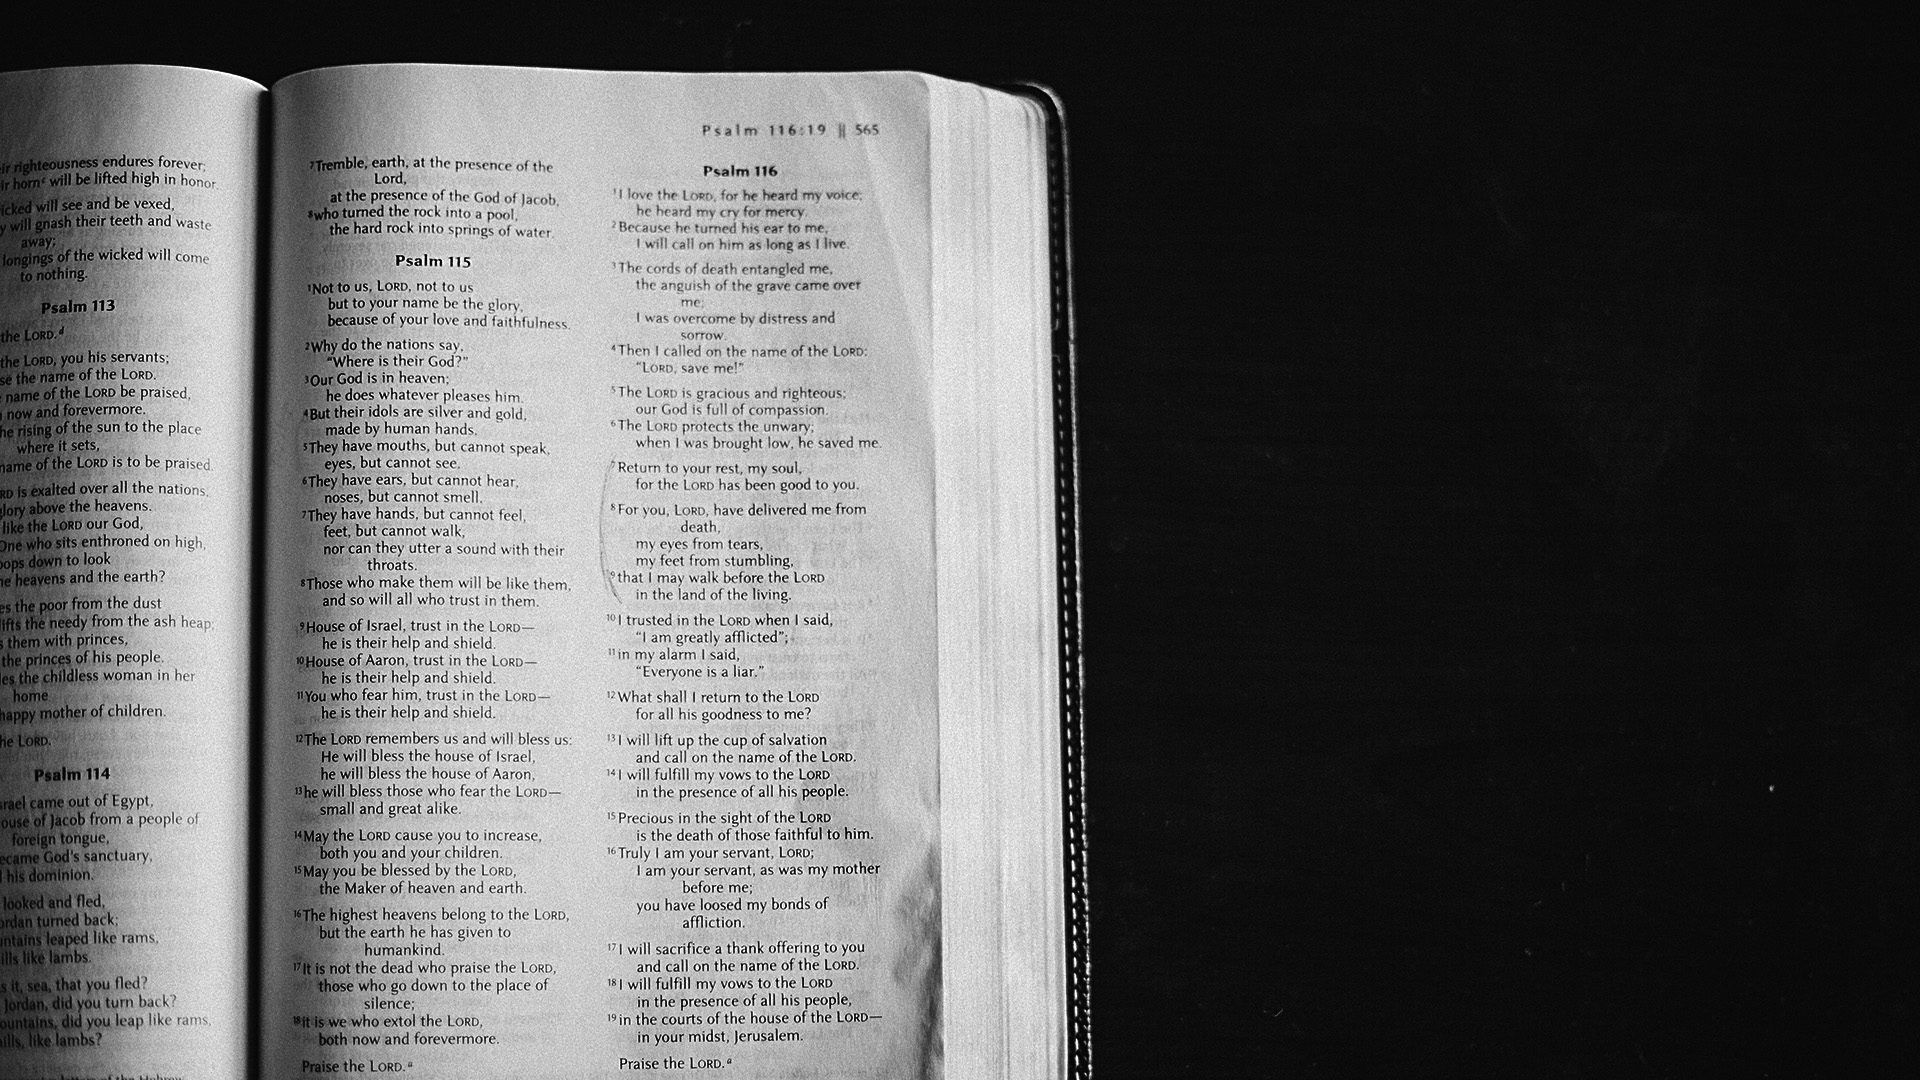 righteousness endures forever;
hornᶜ will be lifted high in honor.
will see and be vexed,
will gnash their teeth and waste
away;
longings of the wicked will come
to nothing.
Psalm 113
the LORD.ᵈ
the LORD, you his servants;
the name of the LORD.
name of the LORD be praised,
now and forevermore.
the rising of the sun to the place
where it sets,
name of the LORD is to be praised.
is exalted over all the nations,
glory above the heavens.
like the LORD our God,
One who sits enthroned on high,
down to look
heavens and the earth?
the poor from the dust
lifts the needy from the ash heap;
them with princes,
the princes of his people.
the childless woman in her
home
happy mother of children.
the LORD.
Psalm 114
came out of Egypt,
of Jacob from a people of
foreign tongue,
became God's sanctuary,
his dominion.
looked and fled,
turned back;
leaped like rams,
like lambs.
it, sea, that you fled?
Jordan, did you turn back?
did you leap like rams,
like lambs?
Psalm 116:19 || 565
⁷Tremble, earth, at the presence of the
Lord,
at the presence of the God of Jacob,
⁸who turned the rock into a pool,
the hard rock into springs of water.
Psalm 115
¹Not to us, LORD, not to us
but to your name be the glory,
because of your love and faithfulness.
²Why do the nations say,
“Where is their God?”
³Our God is in heaven;
he does whatever pleases him.
⁴But their idols are silver and gold,
made by human hands.
⁵They have mouths, but cannot speak,
eyes, but cannot see.
⁶They have ears, but cannot hear,
noses, but cannot smell.
⁷They have hands, but cannot feel,
feet, but cannot walk,
nor can they utter a sound with their
throats.
⁸Those who make them will be like them,
and so will all who trust in them.
⁹House of Israel, trust in the LORD—
he is their help and shield.
¹⁰House of Aaron, trust in the LORD—
he is their help and shield.
¹¹You who fear him, trust in the LORD—
he is their help and shield.
¹²The LORD remembers us and will bless us:
He will bless the house of Israel,
he will bless the house of Aaron,
¹³he will bless those who fear the LORD—
small and great alike.
¹⁴May the LORD cause you to increase,
both you and your children.
¹⁵May you be blessed by the LORD,
the Maker of heaven and earth.
¹⁶The highest heavens belong to the LORD,
but the earth he has given to
humankind.
¹⁷It is not the dead who praise the LORD,
those who go down to the place of
silence;
¹⁸it is we who extol the LORD,
both now and forevermore.
Praise the LORD.ᵃ
Psalm 116
¹I love the LORD, for he heard my voice;
he heard my cry for mercy.
²Because he turned his ear to me,
I will call on him as long as I live.
³The cords of death entangled me,
the anguish of the grave came over
me;
I was overcome by distress and
sorrow.
⁴Then I called on the name of the LORD:
“LORD, save me!”
⁵The LORD is gracious and righteous;
our God is full of compassion.
⁶The LORD protects the unwary;
when I was brought low, he saved me.
⁷Return to your rest, my soul,
for the LORD has been good to you.
⁸For you, LORD, have delivered me from
death,
my eyes from tears,
my feet from stumbling,
⁹that I may walk before the LORD
in the land of the living.
¹⁰I trusted in the LORD when I said,
“I am greatly afflicted”;
¹¹in my alarm I said,
“Everyone is a liar.”
¹²What shall I return to the LORD
for all his goodness to me?
¹³I will lift up the cup of salvation
and call on the name of the LORD.
¹⁴I will fulfill my vows to the LORD
in the presence of all his people.
¹⁵Precious in the sight of the LORD
is the death of those faithful to him.
¹⁶Truly I am your servant, LORD;
I am your servant, as was my mother
before me;
you have loosed my bonds of
affliction.
¹⁷I will sacrifice a thank offering to you
and call on the name of the LORD.
¹⁸I will fulfill my vows to the LORD
in the presence of all his people,
¹⁹in the courts of the house of the LORD—
in your midst, Jerusalem.
Praise the LORD.ᵃ